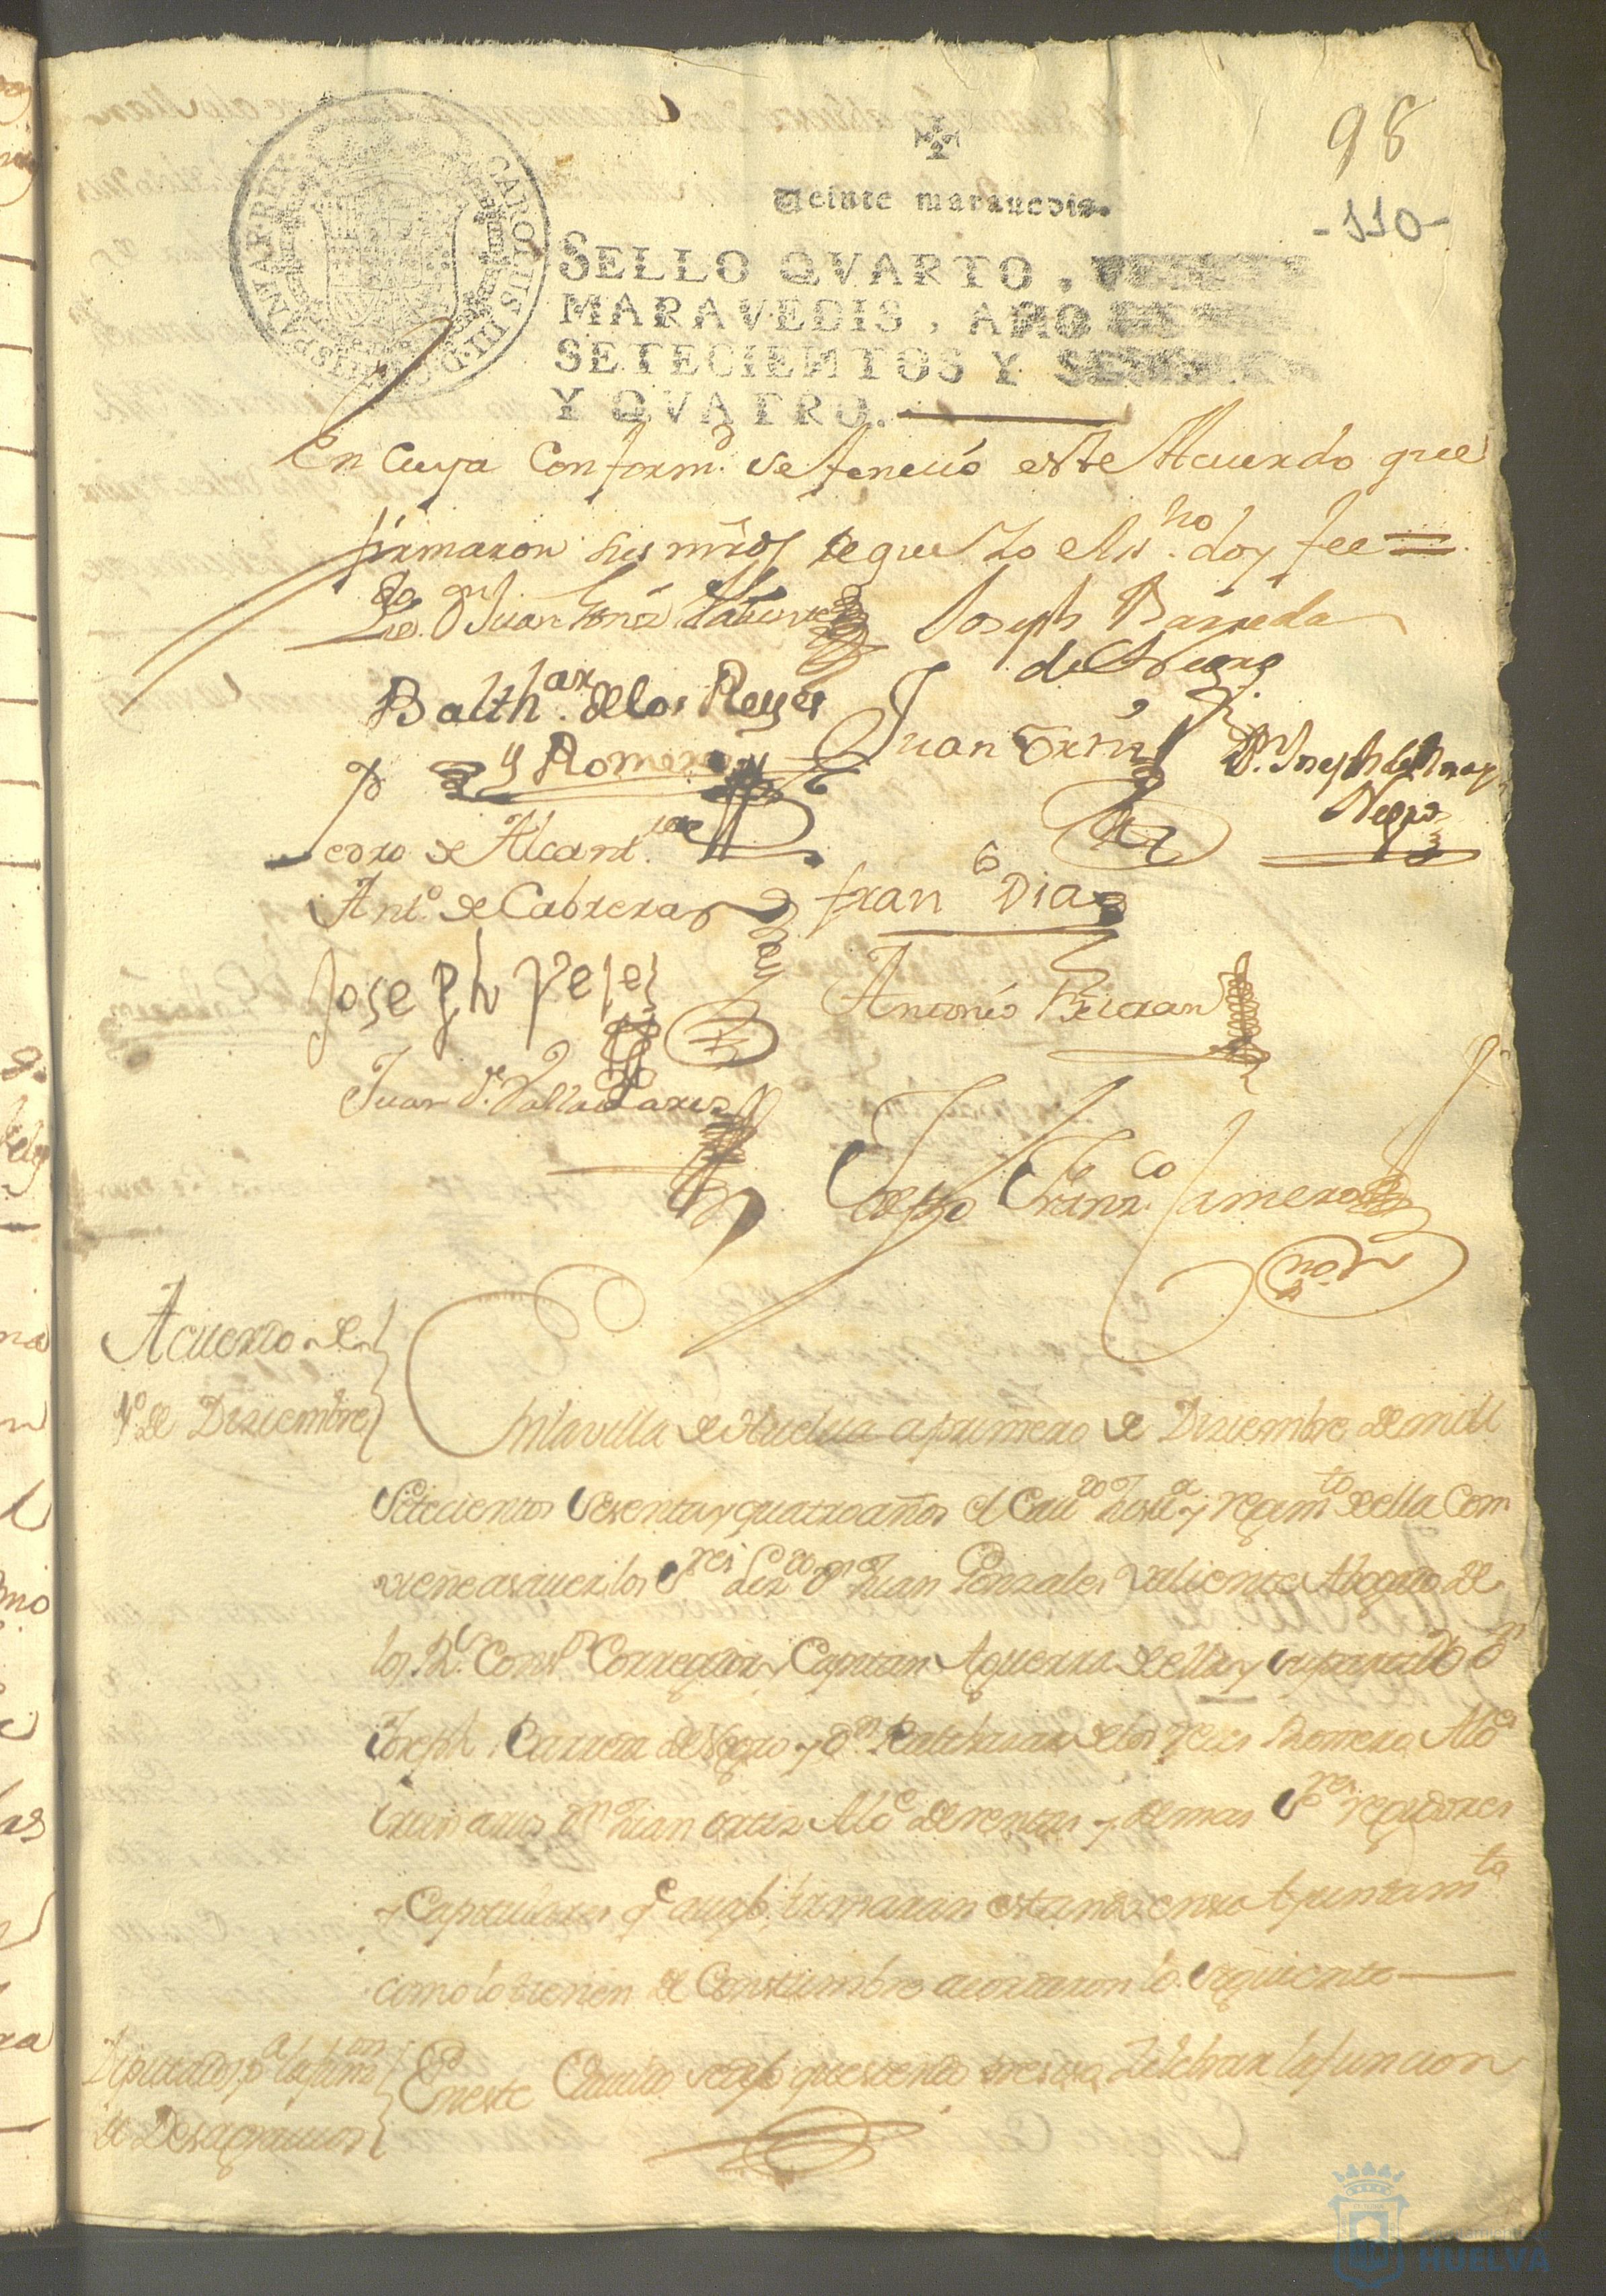 98
-110-
CAROLUS III D G HISPANIAR REX
Veinte maravedis.
SELLO QVARTO, VEINTE
MARAVEDIS, AÑO DE
SETECIENTOS Y SESENTA
Y QVATRO.
En Cuya Conform.d se feneció este Acuerdo que
firmaron sus mrds de que Yo el ess.no doy fee =
Lizdo. Dn Juan Gonz Valiente
Joseph Barreda
Balth.ar de los Reyes
y Romero
Juan Ortiz
Dn. Joseph
Negro
Pedro de Alcant.ra
Ant.o de Cabrera
Fran.co Diaz
Joseph Pelez
Antonio Beltran
Juan de Valladares
Diego Franz.co Camero
no
Acuerdo de
1.o de Diziembre
En la villa de Huelva a primero de Diziembre de mill
Setecientos Sesenta y quatro años el Cau.do Just.a y regim.to de ella Com
viene a saver los S.res Liz.do Dn Juan Gonzales Valiente Abogado de
los R.s Cons.s Corregidor y Capitan Aguerra de ella y su partido Dn
Joseph Barreda de y Dn. Balthasar de los reyes Romero Alc.es
ordinarios Dn Juan ortiz Alc.e de rentas y demas S.res regidores
y Capitulares q.e avajo firmaran estando en su Ayuntam.to
como lo tienen de Costumbre acordaron lo siguiente
Diputados p.a la fun.on
de Desagravios
En este Cavildo se dijo que siendo preciso Zelebrar la funcion
Ayuntamiento de
HUELVA